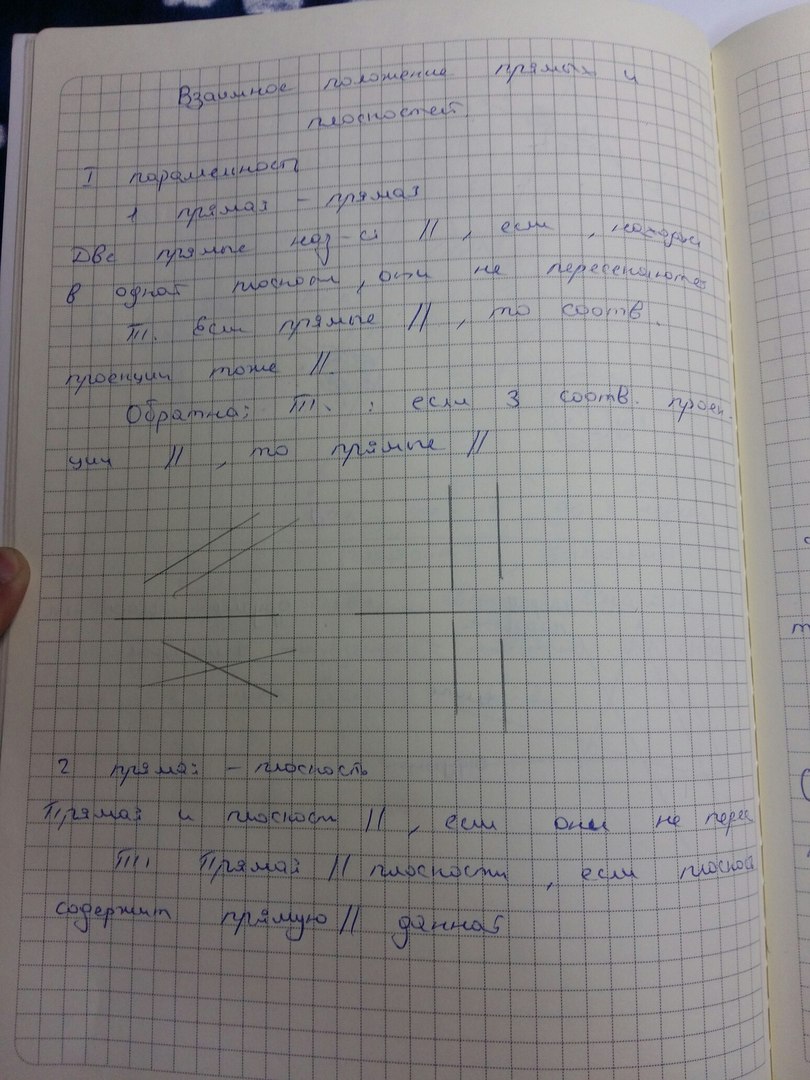 Взаимное положение прямых и
плоскостей.
I параллельность
1 прямая - прямая
Две прямые наз-ся //, если, находясь
в одной плоскости, они не пересекаются
Т. Если прямые //, то соотв.
проекции тоже //.
Обратная Т. : если 3 соотв. проек-
ции //, то прямые //
2 прямая - плоскость
Прямая и плоскость //, если они не перес
Т. Прямая // плоскости, если плоскость
содержит прямую // данной